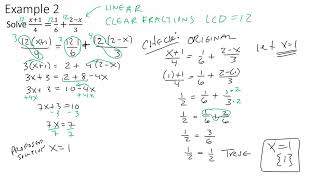 Example 2
Solve (x+1)/4 = 1/6 + (2-x)/3
12 12 12
LINEAR
CLEAR FRACTIONS LCD = 12
3 12(x+1)/4 = 12·1/6 + 12(2-x)/3
3(x+1) = 2 + 4(2-x)
3x+3 = 2+8-4x
3x+3 = 10-4x
+4x +4x
7x+3 = 10
-3 -3
7x = 7
7 7
PROPOSED SOLUTION x = 1
CHECK: ORIGINAL let x=1
(x+1)/4 = 1/6 + (2-x)/3
((1)+1)/4 = 1/6 + (2-(1))/3
1/2 = 1/6 + 1/3 ·2/·2
1/2 = 1/6 + 2/6
1/2 = 3/6
1/2 = 1/2 TRUE
x=1
{1}